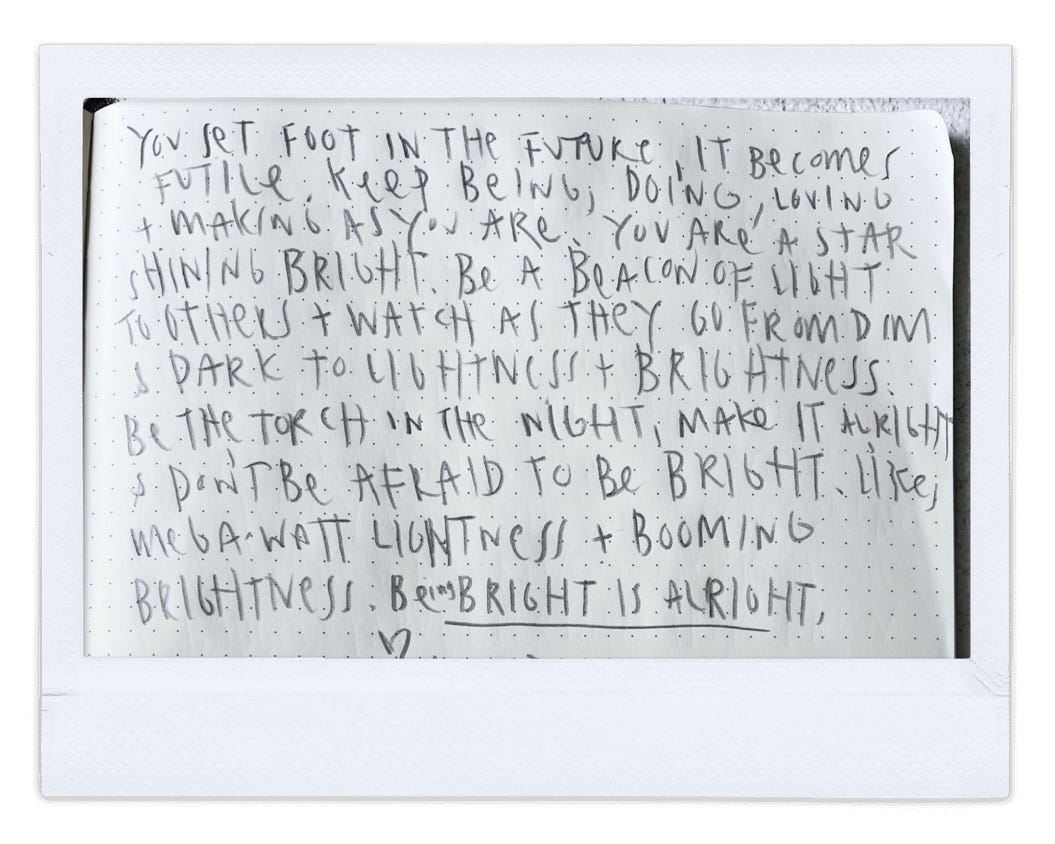 YOU SET FOOT IN THE FUTURE, IT BECOMES
FUTILE. KEEP BEING, DOING, LOVING
+ MAKING AS YOU ARE. YOU ARE A STAR
SHINING BRIGHT. BE A BEACON OF LIGHT
TO OTHERS + WATCH AS THEY GO FROM DIM
& DARK TO LIGHTNESS + BRIGHTNESS.
BE THE TORCH IN THE NIGHT, MAKE IT ALRIGHT
& DON'T BE AFRAID TO BE BRIGHT. LIKE,
MEGA-WATT LIGHTNESS + BOOMING
BRIGHTNESS. Being BRIGHT IS ALRIGHT,